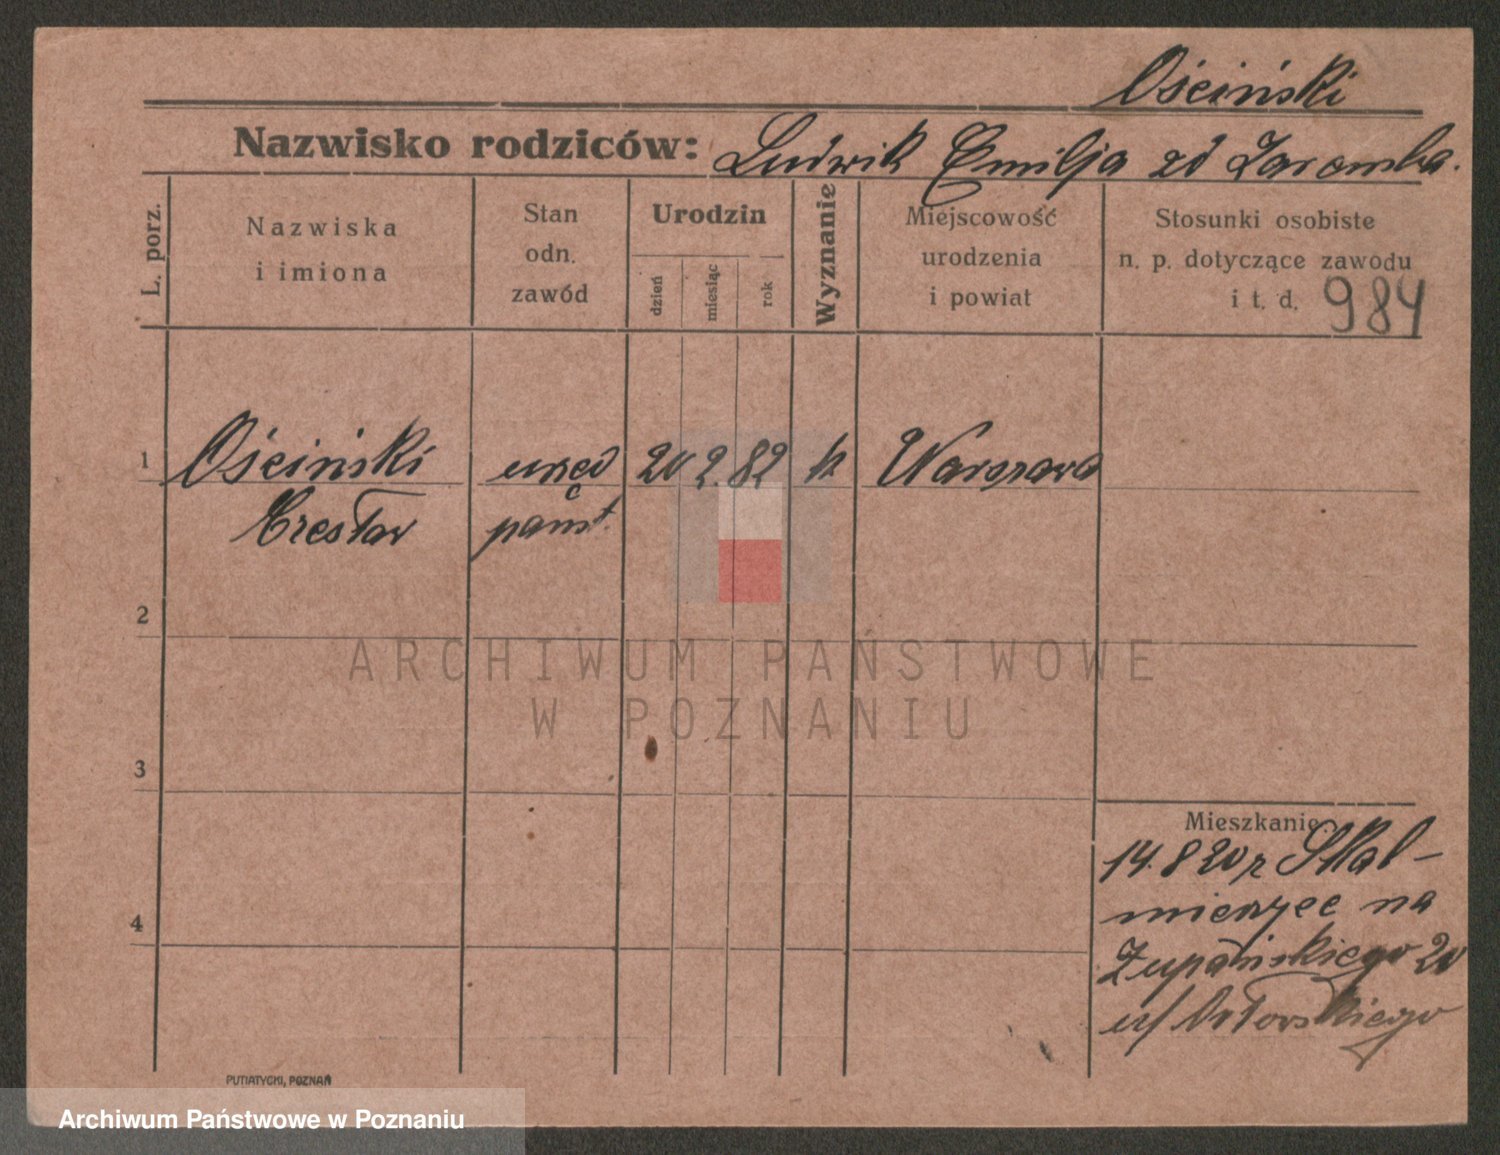 Ościński
Nazwisko rodziców: Ludwik Emilja zd Zaremba.
L. porz.
Nazwiska
i imiona
Stan
odn.
zawód
Urodzin
dzień
miesiąc
rok
Wyznanie
Miejscowość
urodzenia
i powiat
Stosunki osobiste
n. p. dotyczące zawodu
i t. d. 984
1 Ościński urzęd 20 2. 82 k Warszawa
Czesław państ.
2
3
4
Mieszkanie:
14.8 20 r Skal-
mierzyce na
Żupańskiego 20
u/
PUTIATYCKI, POZNAŃ
ARCHIWUM PAŃSTWOWE
W POZNANIU
Archiwum Państwowe w Poznaniu